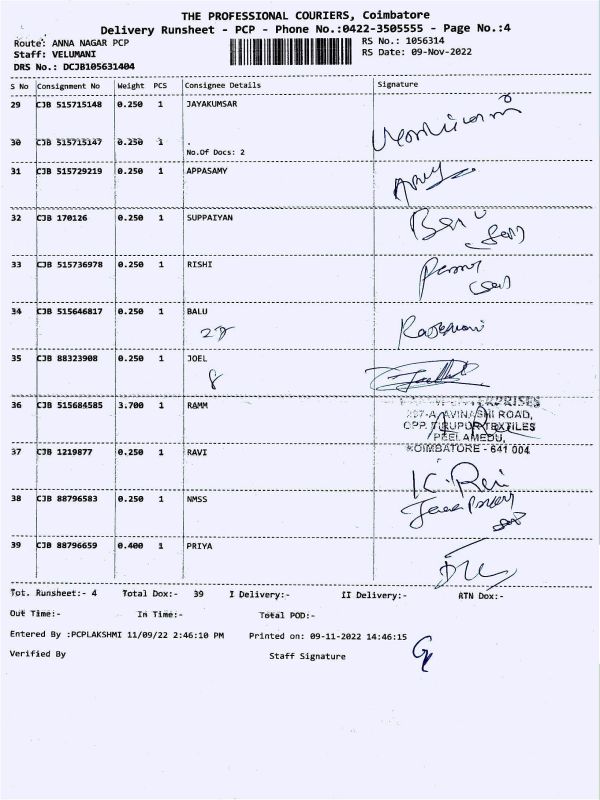 THE PROFESSIONAL COURIERS, Coimbatore
Delivery Runsheet - PCP - Phone No.:0422-3505555 - Page No.:4
Route: ANNA NAGAR PCP RS No.: 1056314
Staff: VELUMANI RS Date: 09-Nov-2022
DRS No.: DCJB105631404
S No Consignment No Weight PCS Consignee Details Signature
29 CJB 515715148 0.250 1 JAYAKUMSAR
30 CJB 515715147 0.250 1 .
No.Of Docs: 2
31 CJB 515729219 0.250 1 APPASAMY
32 CJB 170126 0.250 1 SUPPAIYAN
33 CJB 515736978 0.250 1 RISHI
34 CJB 515646817 0.250 1 BALU
35 CJB 88323908 0.250 1 JOEL
8
36 CJB 515684585 3.700 1 RAMM
ENTERPRISES
AVINASHI ROAD,
OPP. TIRUPUR TEXTILES
PEELAMEDU,
KOIMBATORE - 641 004
37 CJB 1219877 0.250 1 RAVI
K. Ravi
38 CJB 88796583 0.250 1 NMSS
39 CJB 88796659 0.400 1 PRIYA
Tot. Runsheet:- 4 Total Dox:- 39 I Delivery:- II Delivery:- RTN Dox:-
Out Time:- In Time:- Total POD:-
Entered By :PCPLAKSHMI 11/09/22 2:46:10 PM Printed on: 09-11-2022 14:46:15
Verified By Staff Signature